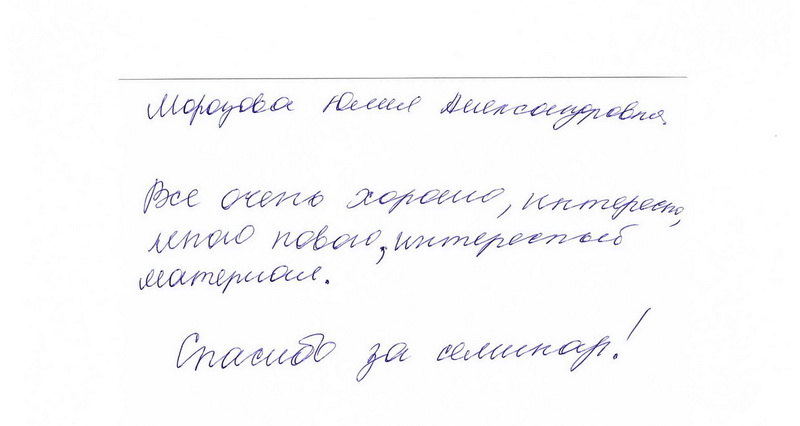 Морозова Юлия Александровна
Все очень хорошо, интересно,
много нового, интересный
материал.
Спасибо за семинар!